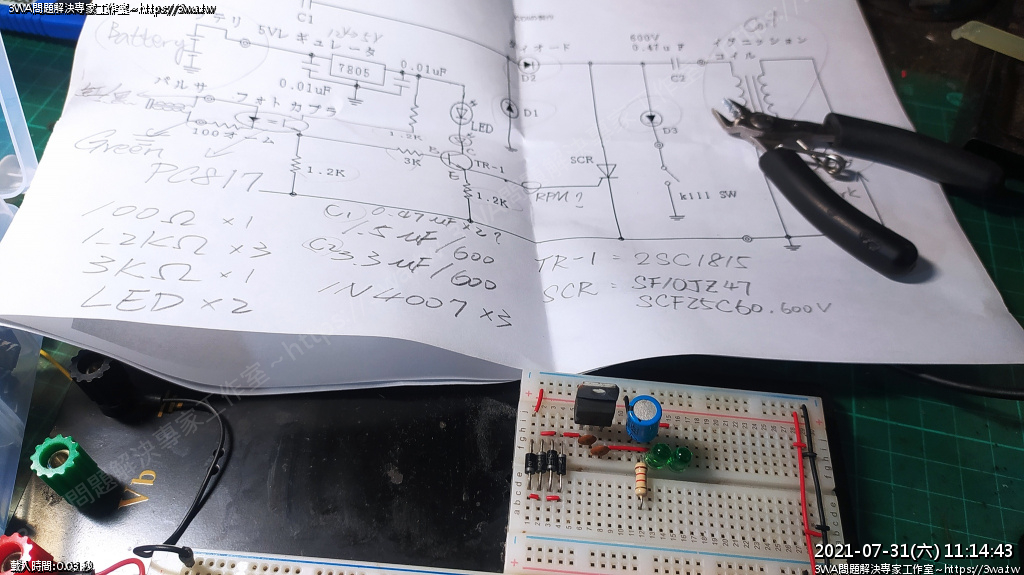 3WA問題解決專家工作室~https://3wa.tw
C1
バッテリ
Battery
5Vレギュレータ
7805
0.01uF
0.01uF
パルサ
フォトカプラ
100オーム
Green
PC817
1.2K
3K
LED
TR-1
B
E
1.2K
ダイオード
D2
D1
600V
0.47uF
C2
イグニッション
コイル
Coil
D3
SCR
RPM?
kill SW
100Ω ×1
1.2KΩ ×3
3KΩ ×1
LED ×2
C1 0.47uF ×2?
1.5uF/600
C2 3.3uF/600
1N4007 ×3
TR-1 = 2SC1815
SCR = SF10JZ47
SCF25C60.600V
Vb
2021-07-31(六) 11:14:43
載入時間:0.03 秒
3WA問題解決專家工作室~https://3wa.tw